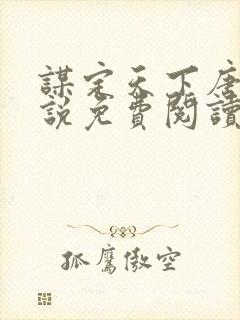 謀定天下唐
說免費閱讀
孤鷹傲空